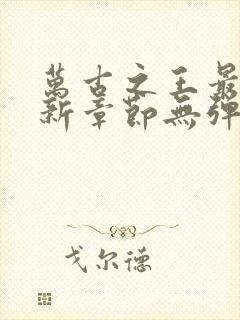 萬古之王最
新章節無彈
戈尔德